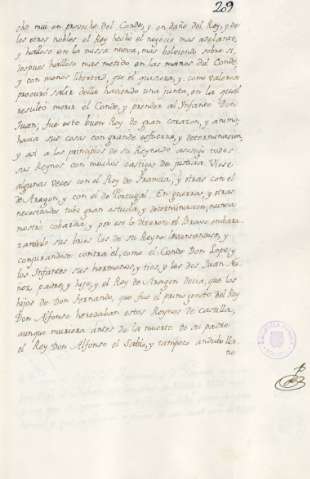 209
cho mui en provecho del Conde, y en daño del Rey, y de
los otros nobles el Rey hecho el negocio mas adelante,
y hallose en la nuestra nueva, mas bolviendo sobre si,
despues hallose mas metido en las manos del Conde,
y con menos libertad, que el quisiera, y como valeroso
procuró salir della haciendo una junta, en la qual
resultó morir el Conde, y prender al Infante Don
Juan; fue este buen Rey de gran corazon, y animo,
hacia sus cosas con grande esfuerzo, y determinacion,
y asi a los principios de su Reynado asosegó todos
sus Reynos con muchos castigos de justicia. Viose
algunas veces con el Rey de Francia, y otras con el
de Aragon, y con el de Portugal. En guerras, y otras
necesidades tubo gran astucia, y determinacion, nunca
mostró cobardia, y por eso le dixeron el Bravo
zandole sus hijos los de su Reyno levantandose, y
conspirandose contra el, como el Conde Don Lope, y
los Infantes sus hermanos, y tios, y los dos Juan Nu-
ñez, padre, y hijo, y el Rey de Aragon decia, que los
hijos de Don Fernando, que fue el primogenito del Rey
Don Alfonso heredaban estos Reynos de Castilla,
aunque muriera antes de la muerte de su padre
el Rey Don Alfonso el Sabio, y tampoco anduvo lla-
no